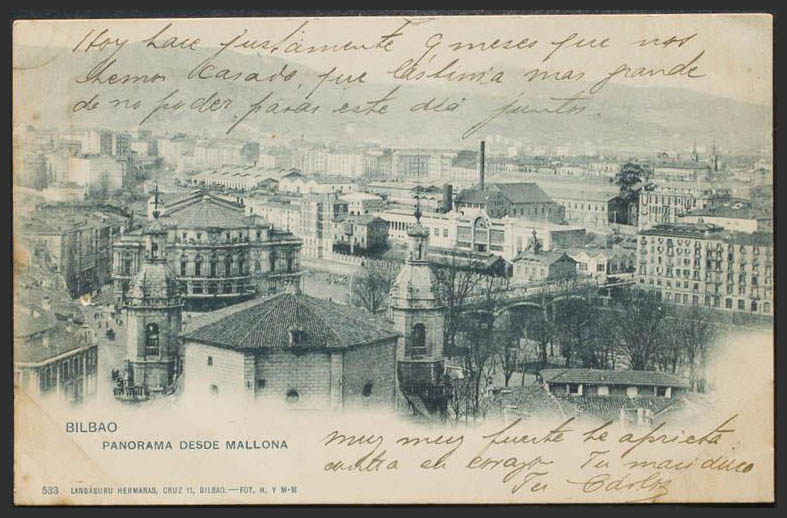 Hoy hace justamente 9 meses que nos
hemos casado, que lástima mas grande
de no poder pasar este día juntos.
BILBAO
PANORAMA DESDE MALLONA
muy muy fuerte te aprieta
contra su corazon Tu
Tu Carlos
533 LANDÁBURU HERMANAS, CRUZ 11, BILBAO.—FOT. H. Y M-M